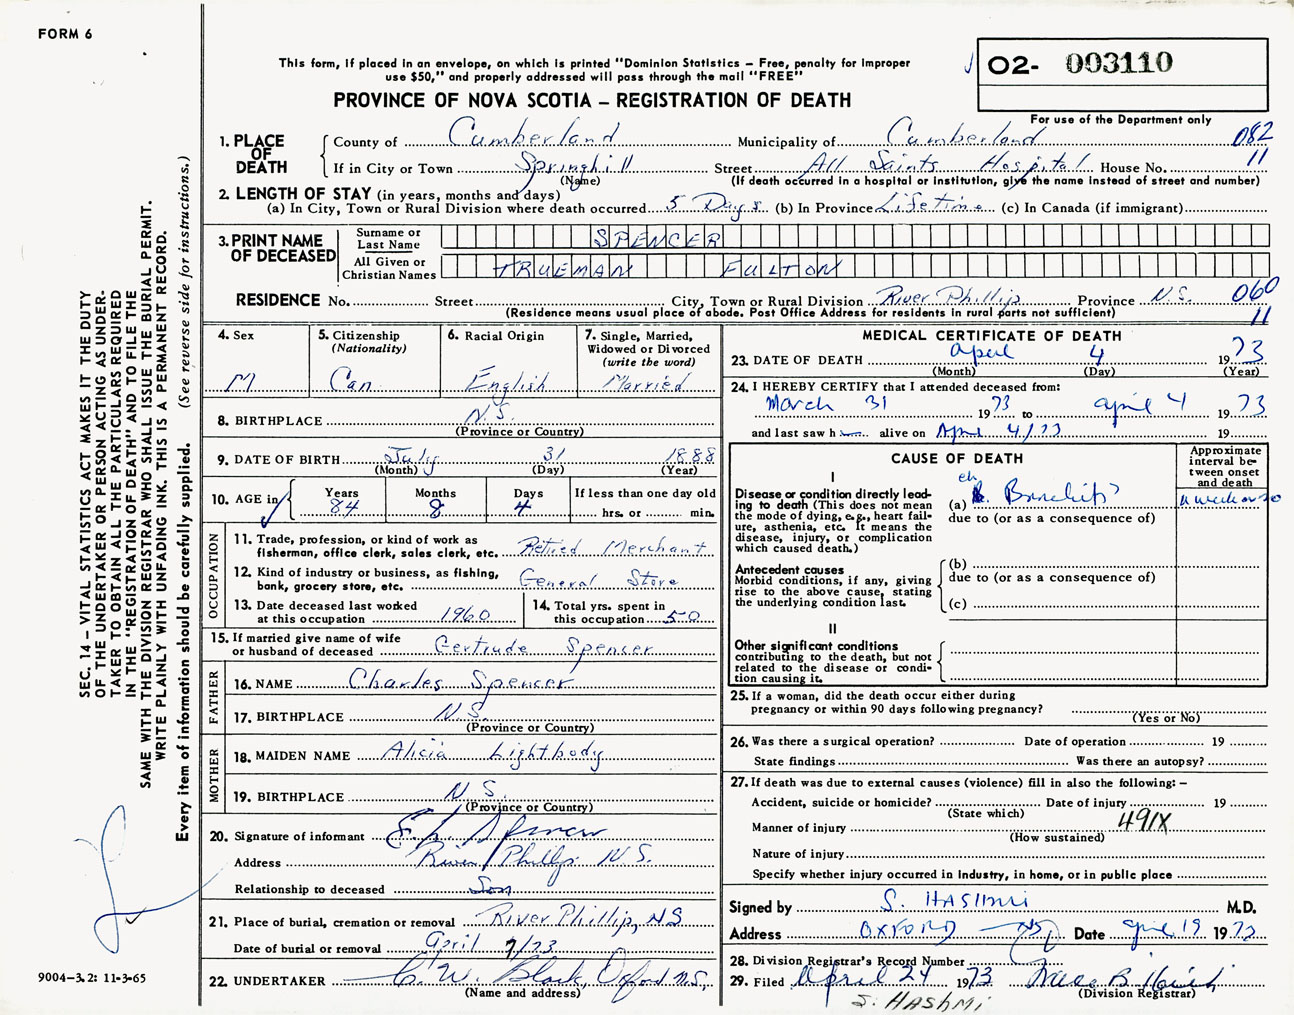 FORM 6
This form, if placed in an envelope, on which is printed "Dominion Statistics – Free, penalty for improper
use $50," and properly addressed will pass through the mail "FREE"
PROVINCE OF NOVA SCOTIA – REGISTRATION OF DEATH
02- 003110
For use of the Department only
1. PLACE OF DEATH
County of Cumberland Municipality of Cumberland 082
If in City or Town Springhill Street All Saints Hospital House No. 11
(Name) (If death occurred in a hospital or institution, give the name instead of street and number)
2. LENGTH OF STAY (in years, months and days)
(a) In City, Town or Rural Division where death occurred 5 Days (b) In Province Lifetime (c) In Canada (if immigrant)
3. PRINT NAME OF DECEASED
Surname or Last Name SPENCER
All Given or Christian Names TRUEMAN FULTON
RESIDENCE No. Street City, Town or Rural Division River Phillip Province N.S. 060
(Residence means usual place of abode. Post Office Address for residents in rural parts not sufficient) 11
4. Sex
M
5. Citizenship
(Nationality)
Can.
6. Racial Origin
English
7. Single, Married,
Widowed or Divorced
(write the word)
Married
8. BIRTHPLACE N.S.
(Province or Country)
9. DATE OF BIRTH July 31 1888
(Month) (Day) (Year)
10. AGE in
Years Months Days If less than one day old
84 8 4 hrs. or min.
OCCUPATION
11. Trade, profession, or kind of work as
fisherman, office clerk, sales clerk, etc. Retired Merchant
12. Kind of industry or business, as fishing,
bank, grocery store, etc. General Store
13. Date deceased last worked
at this occupation 1960
14. Total yrs. spent in
this occupation 50
15. If married give name of wife
or husband of deceased Gertrude Spencer
FATHER
16. NAME Charles Spencer
17. BIRTHPLACE N.S.
(Province or Country)
MOTHER
18. MAIDEN NAME Alicia Lightbody
19. BIRTHPLACE N.S.
(Province or Country)
20. Signature of informant Spencer
Address River Phillip N.S.
Relationship to deceased Son
21. Place of burial, cremation or removal River Phillip, NS
Date of burial or removal April 7/73
22. UNDERTAKER C. W. Black, Oxford N.S.,
(Name and address)
MEDICAL CERTIFICATE OF DEATH
23. DATE OF DEATH April 4 1973
(Month) (Day) (Year)
24. I HEREBY CERTIFY that I attended deceased from:
March 31 1973 to April 4 1973
and last saw h alive on April 4/73 19
CAUSE OF DEATH
Approximate
interval be-
tween onset
and death
I
Disease or condition directly lead-
ing to death (This does not mean
the mode of dying, e.g., heart fail-
ure, asthenia, etc. It means the
disease, injury, or complication
which caused death.)
(a) ch. Bronchitis
due to (or as a consequence of)
Antecedent causes
Morbid conditions, if any, giving
rise to the above cause, stating
the underlying condition last.
(b)
due to (or as a consequence of)
(c)
II
Other significant conditions
contributing to the death, but not
related to the disease or condi-
tion causing it.
a week or so
25. If a woman, did the death occur either during
pregnancy or within 90 days following pregnancy?
(Yes or No)
26. Was there a surgical operation? Date of operation 19
State findings Was there an autopsy?
27. If death was due to external causes (violence) fill in also the following: –
Accident, suicide or homicide? Date of injury 19
(State which)
491X
Manner of injury
(How sustained)
Nature of injury
Specify whether injury occurred in industry, in home, or in public place
Signed by S. HASHMI M.D.
Address OXFORD NS Date April 19 1973
28. Division Registrar's Record Number
29. Filed April 24 1973
(Division Registrar)
S. HASHMI
SEC. 14 – VITAL STATISTICS ACT MAKES IT THE DUTY
OF THE UNDERTAKER OR PERSON ACTING AS UNDER-
TAKER TO OBTAIN ALL THE PARTICULARS REQUIRED
IN THE "REGISTRATION OF DEATH" AND TO FILE THE
SAME WITH THE DIVISION REGISTRAR WHO SHALL ISSUE THE BURIAL PERMIT.
WRITE PLAINLY WITH UNFADING INK. THIS IS A PERMANENT RECORD.
Every item of information should be carefully supplied. (See reverse side for instructions.)
9004-3.2: 11-3-65